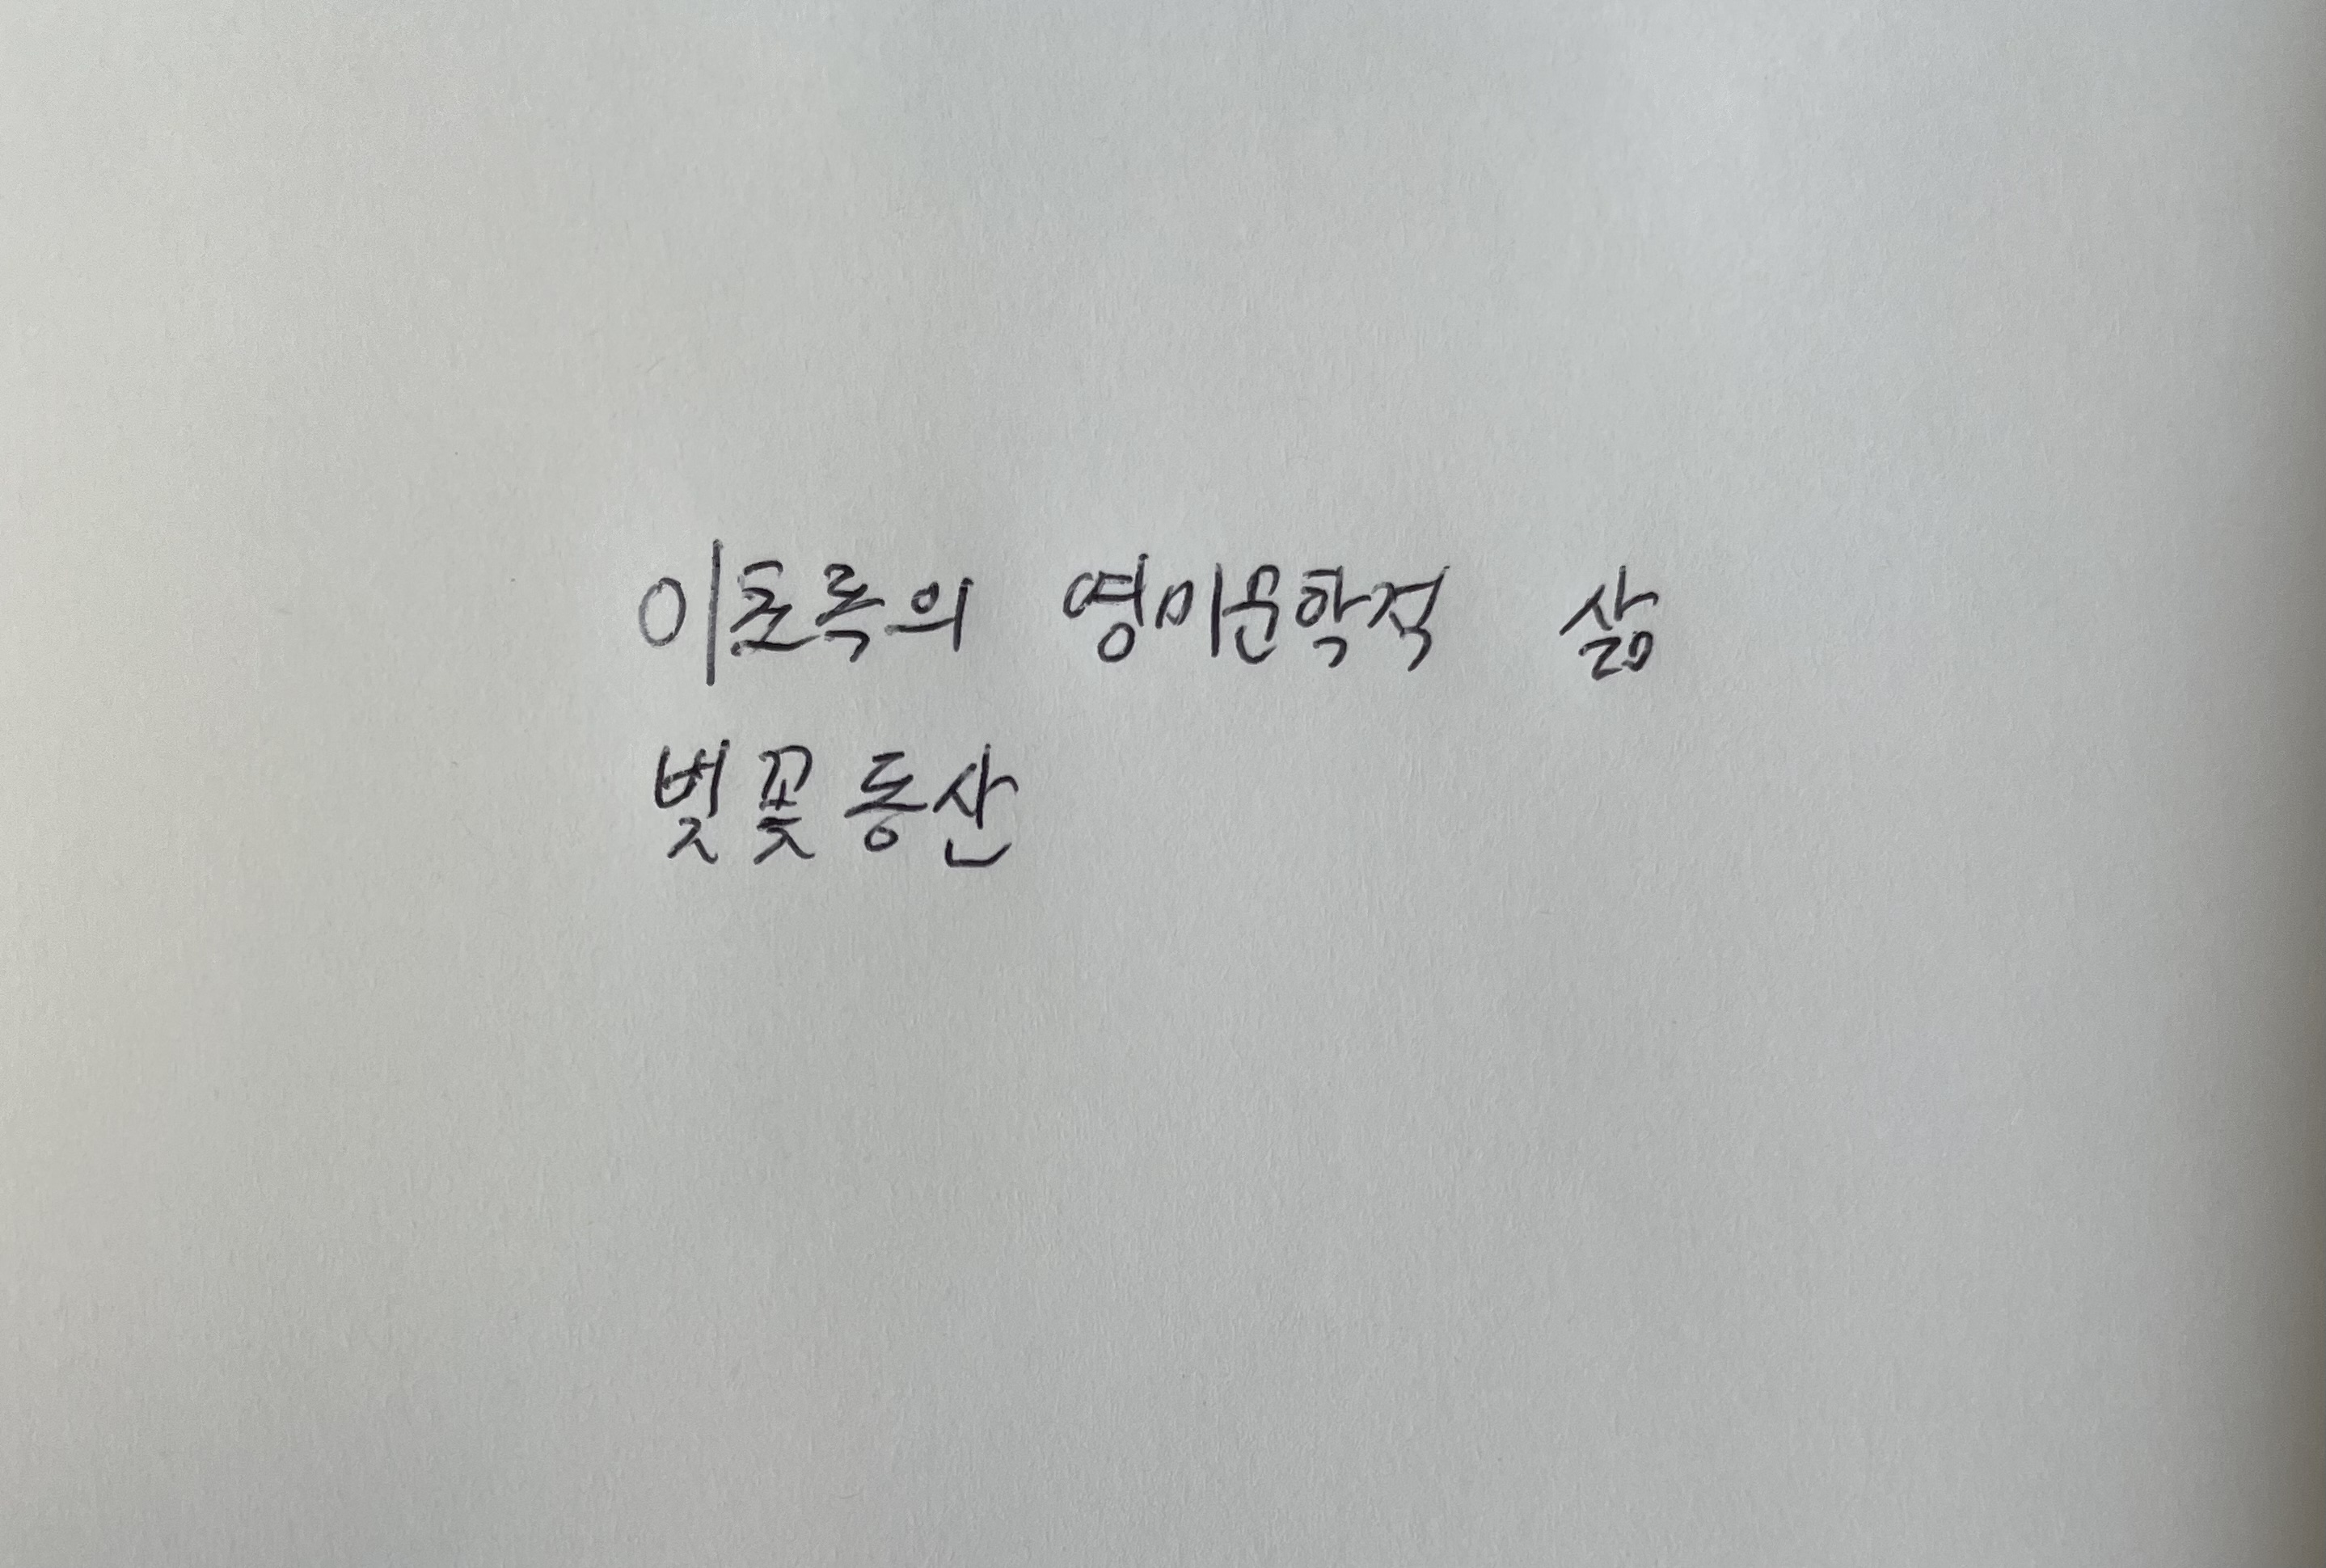 이초록의 영미문학적 삶
벚꽃동산